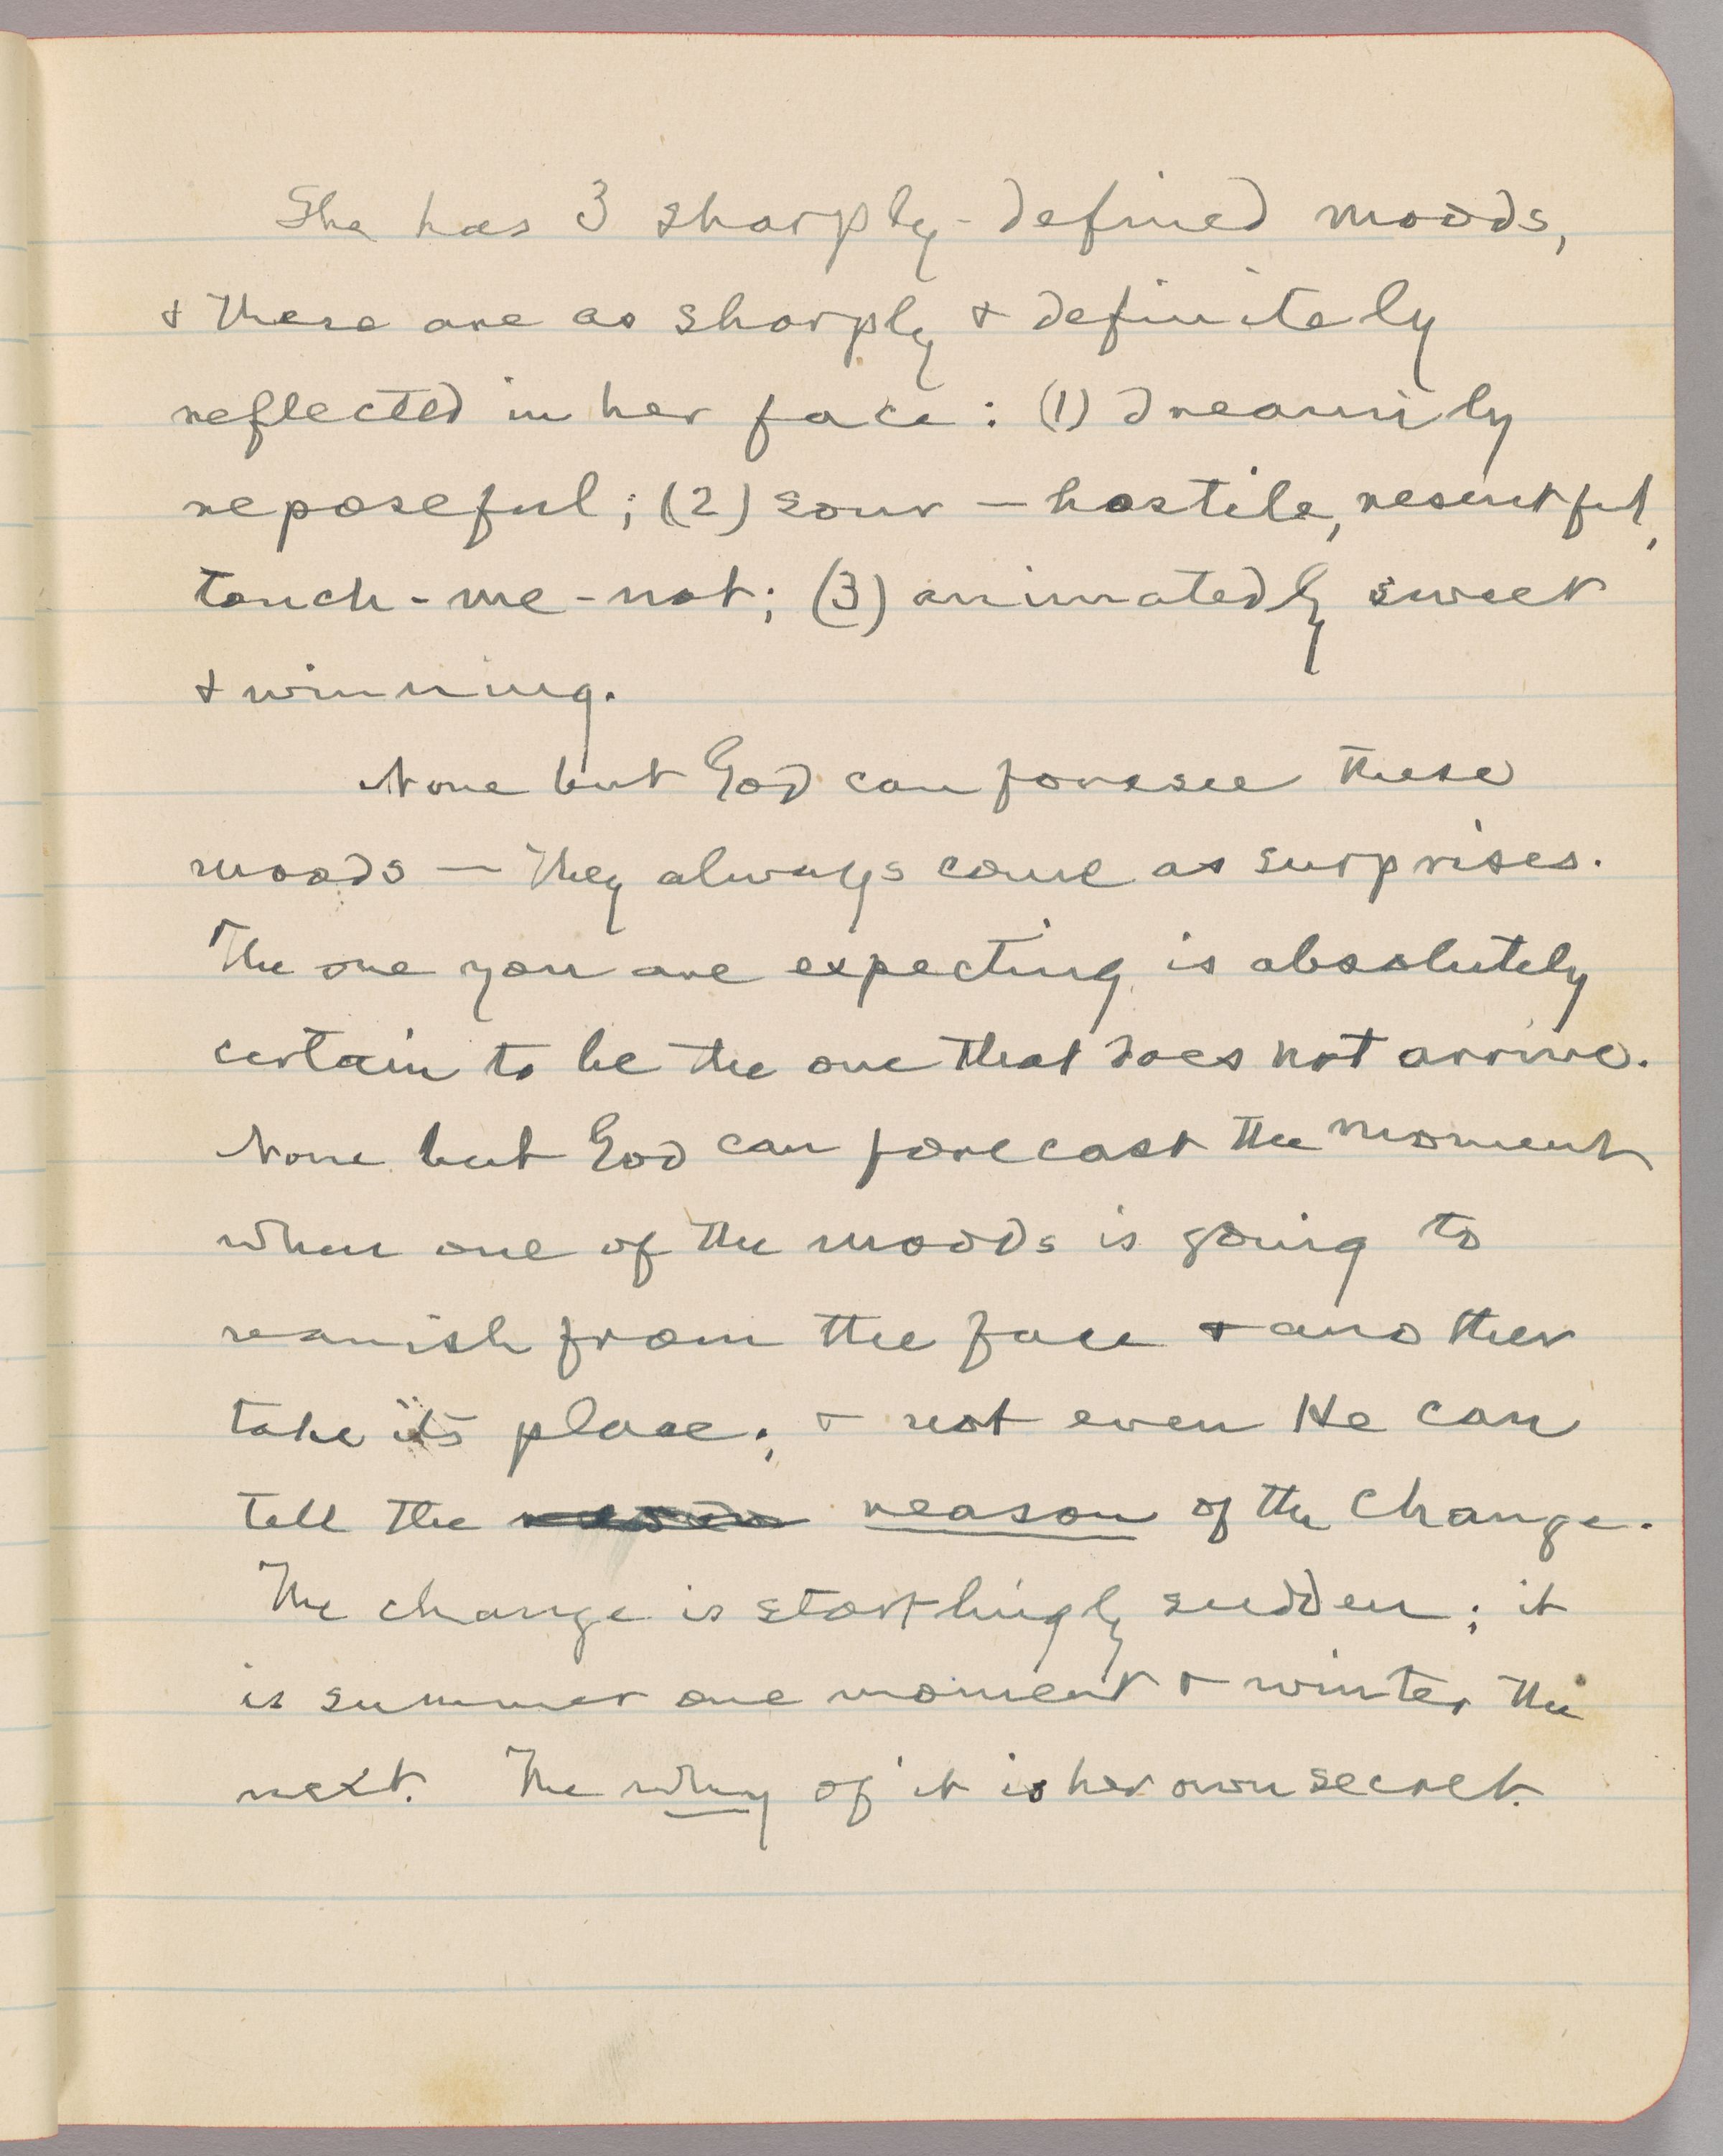 She has 3 sharply-defined moods,
& these are as sharply & definitely
reflected in her face: (1) dreamily
reposeful; (2) sour — hostile, resentful,
touch-me-not; (3) animatedly sweet
& winning.
None but God can foresee these
moods — they always come as surprises.
The one you are expecting is absolutely
certain to be the one that does not arrive.
None but God can forecast the moment
when one of the moods is going to
vanish from the face & another
take its place; & not even He can
tell the reason of the change.
The change is startlingly sudden; it
is summer one moment & winter the
next. The why of it is her own secret.